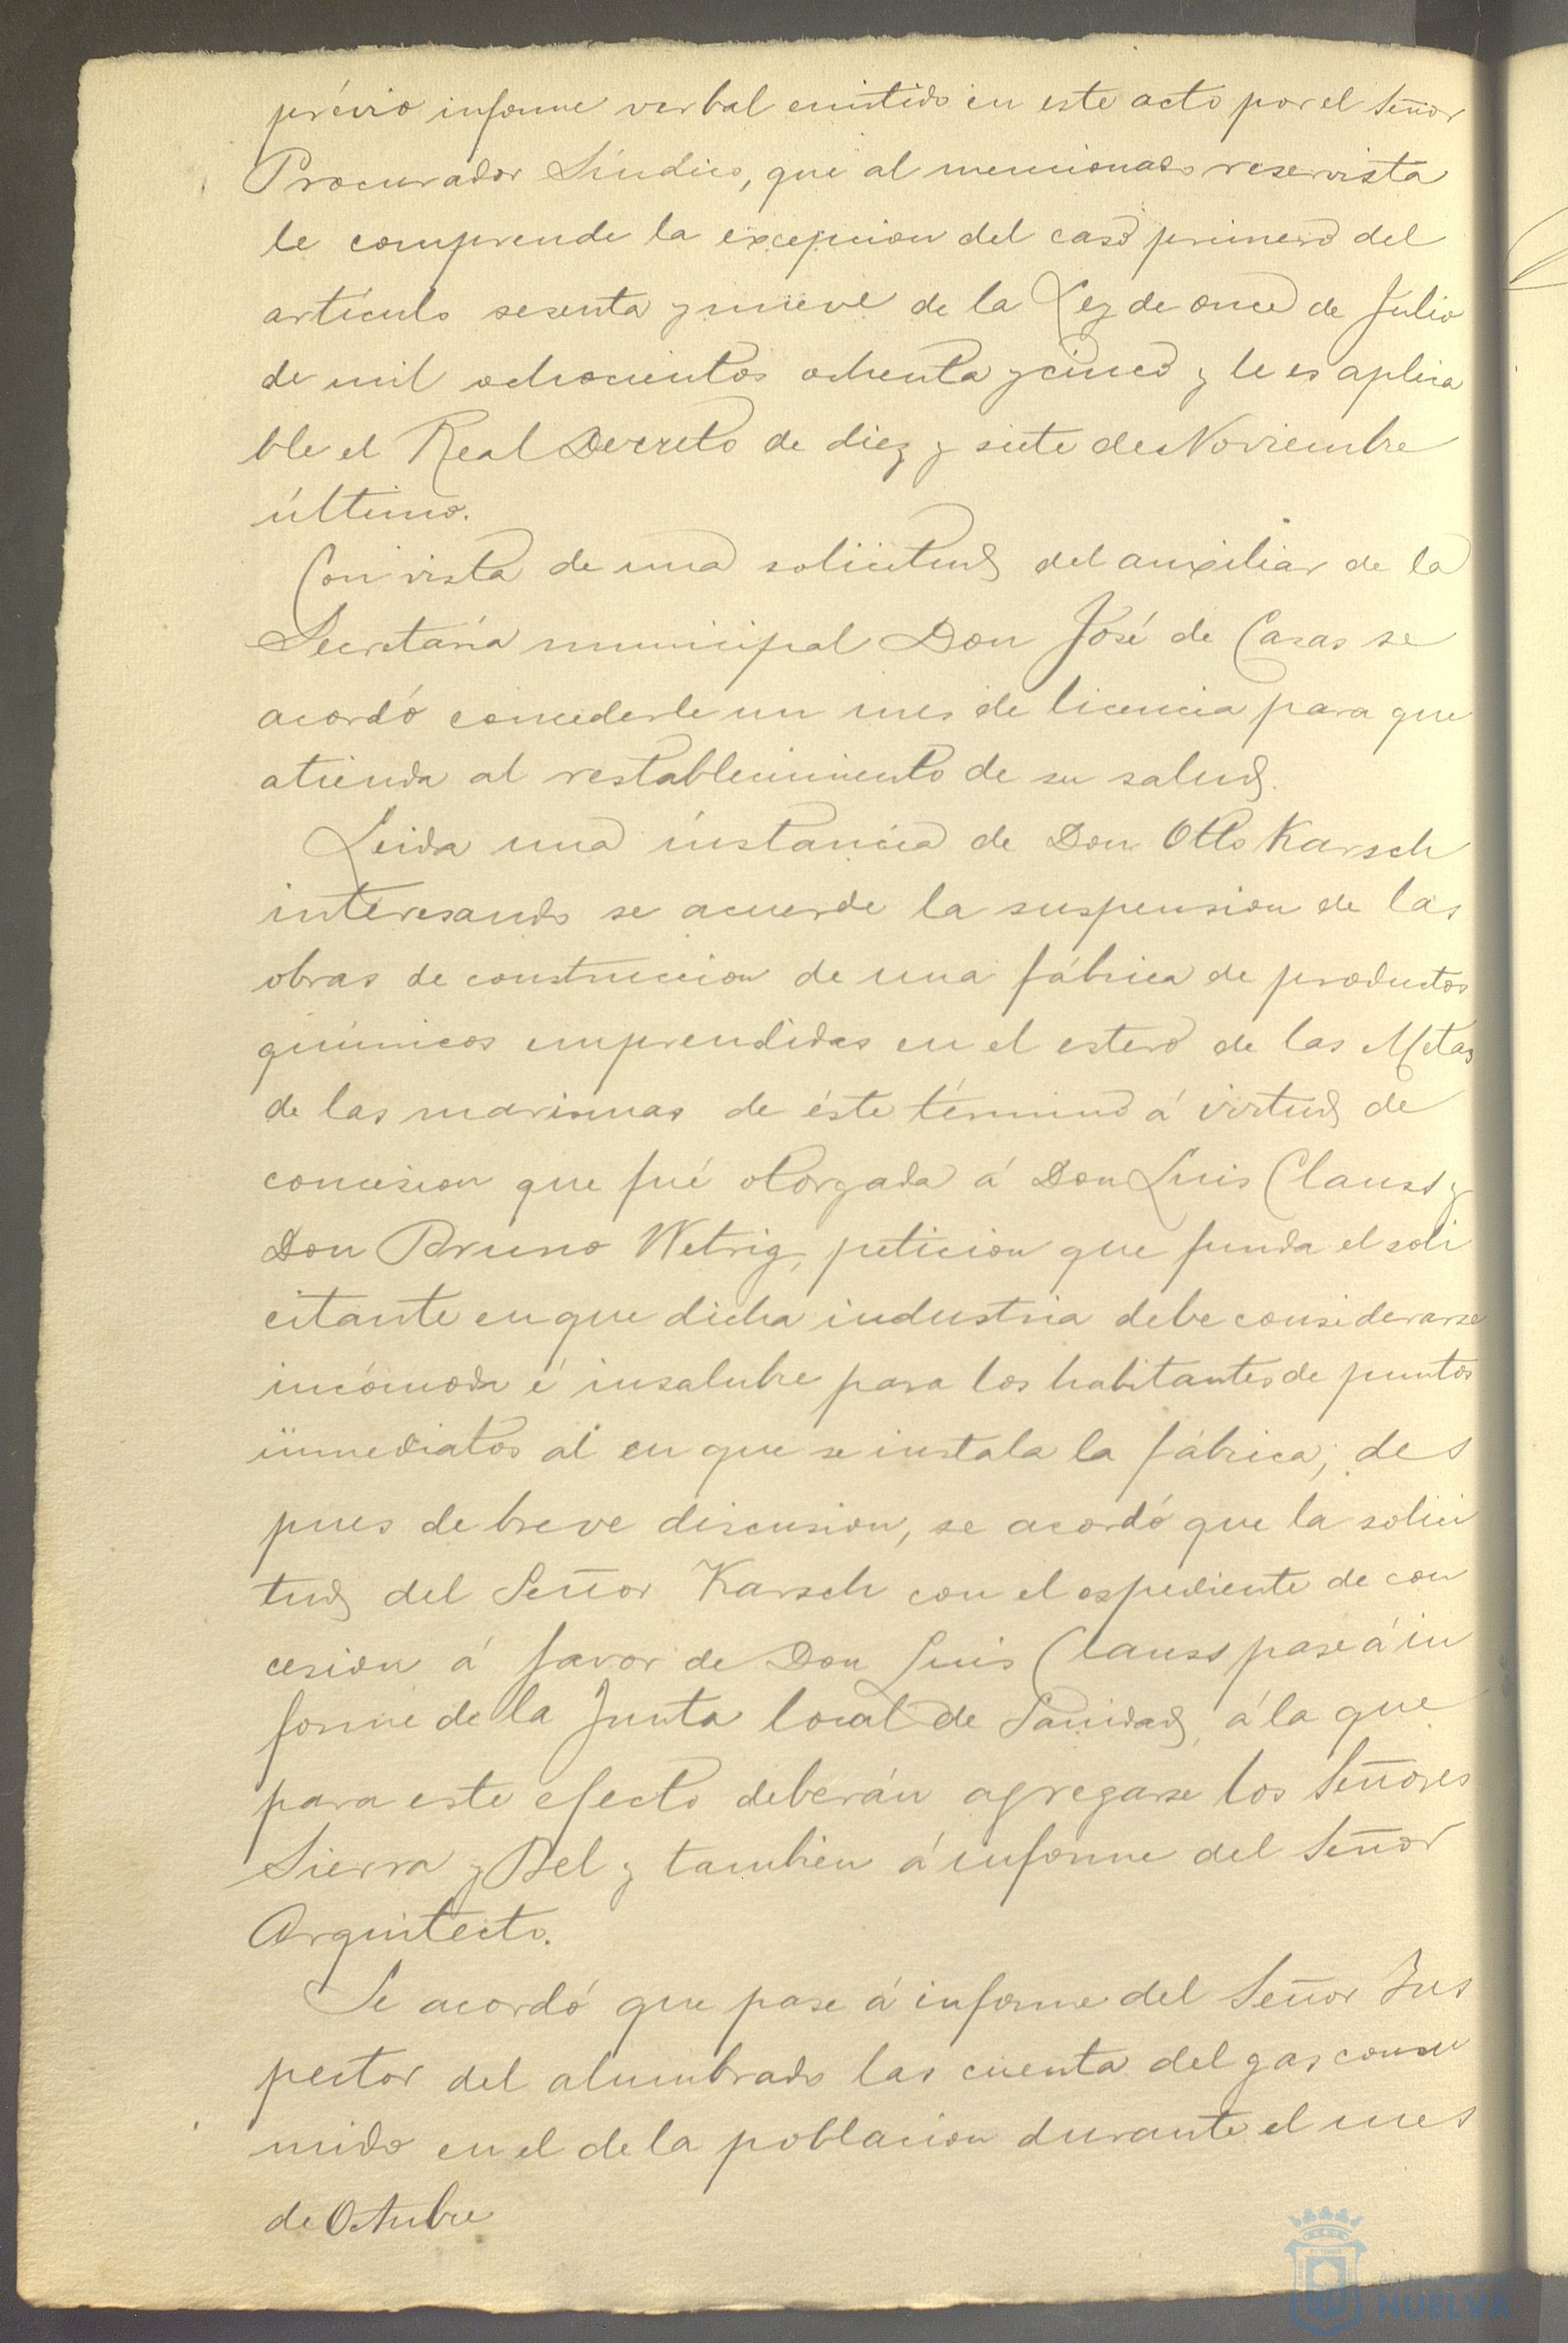 prévio informe verbal emitido en este acto por el Señor
Procurador Síndico, que al mencionado reservista
le comprende la excepcion del caso primero del
artículo sesenta y nueve de la Ley de once de Julio
de mil ochocientos ochenta y cinco y le es aplica
ble el Real Decreto de diez y siete de Noviembre
último.
Con vista de una solicitud del auxiliar de la
Secretaría municipal Don José de Casas se
acordó concederle un mes de licencia para que
atienda al restablecimiento de su salud.
Leida una instancia de Don Otto Karsch
interesando se acuerde la suspension de las
obras de construccion de una fábrica de productos
químicos emprendidas en el estero de las Metas
de las marismas de éste término á virtud de
concesion que fué otorgada á Don Luis Clauss y
Don Bruno Wetrig, peticion que funda el soli
citante en que dicha industria debe considerarse
incómoda é insalubre para los habitantes de puntos
inmediatos al en que se instala la fábrica; des
pues de breve discusion, se acordó que la solici
tud del Señor Karsch con el espediente de con
cesion á favor de Don Luis Clauss pase á in
forme de la Junta local de Sanidad, á la que
para este efecto deberán agregarse los Señores
Sierra y Bel y tambien á informe del Señor
Arquitecto.
Se acordó que pase á informe del Señor Ins
pector del alumbrado las cuenta del gas consu
mido en el de la poblacion durante el mes
de Octubre
HUELVA